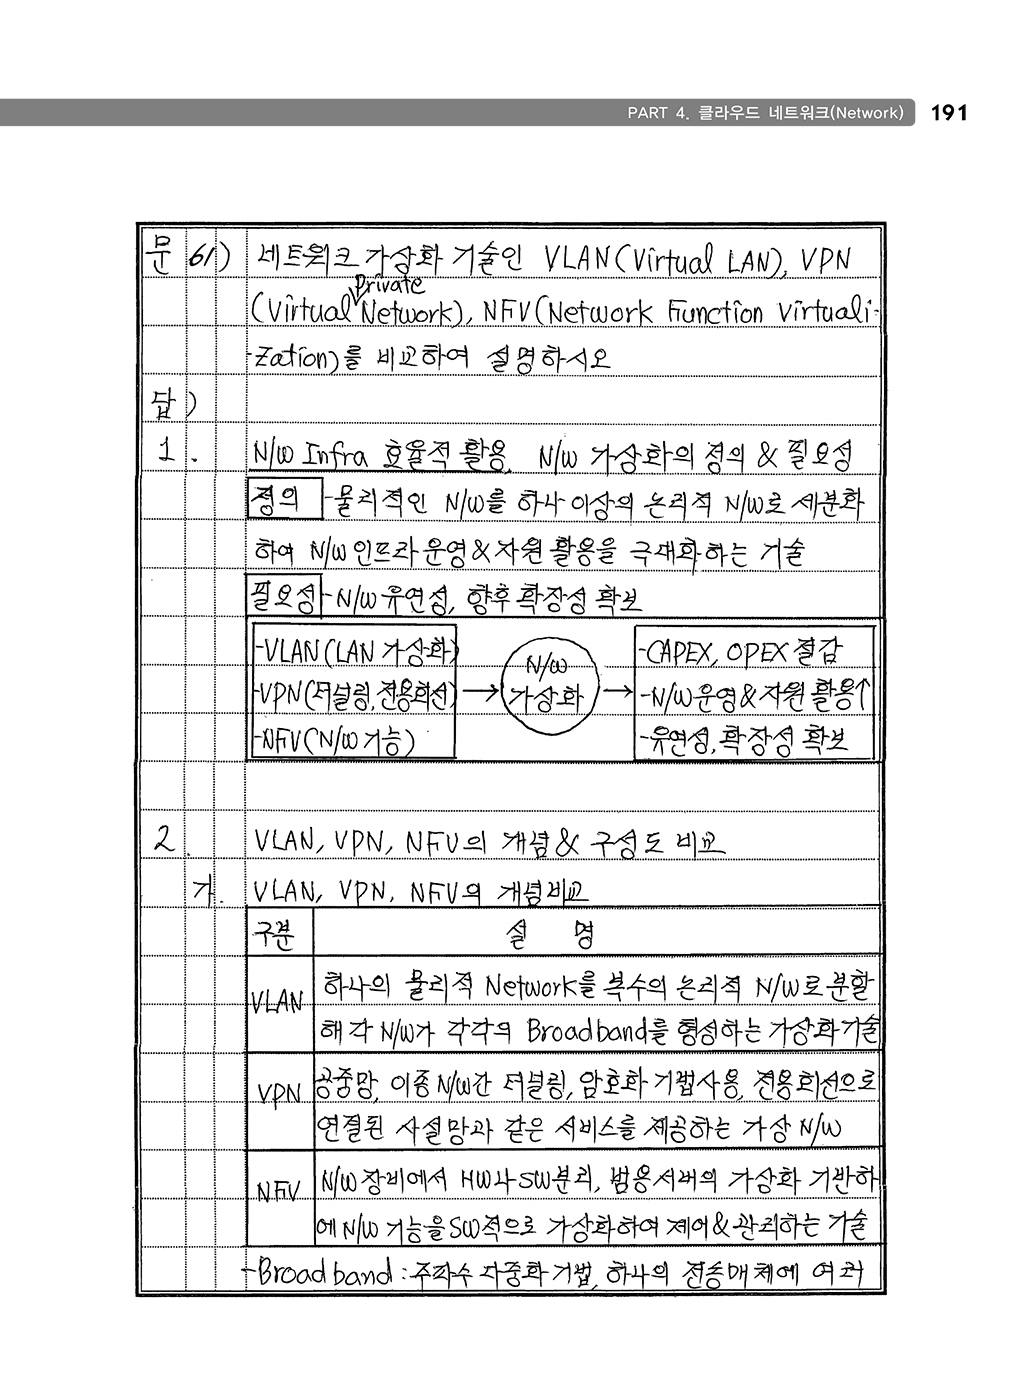 PART 4. 클라우드 네트워크(Network) 191
문 61) 네트워크 가상화 기술인 VLAN(Virtual LAN), VPN
Private
(Virtual Network), NFV(Network Function Virtuali-
-zation)를 비교하여 설명하시오
답)
1. N/W Infra 효율적 활용, N/W 가상화의 정의 & 필요성
정의 -물리적인 N/W를 하나 이상의 논리적 N/W로 세분화
하여 N/W인프라운영&자원 활용을 극대화하는 기술
필요성 -N/W유연성, 향후 확장성 확보
-VLAN(LAN 가상화)
-VPN(터널링,전용회선)
-NFV(N/W기능)
N/W
가상화
-CAPEX, OPEX 절감
-N/W운영&자원 활용↑
-유연성,확장성 확보
2. VLAN, VPN, NFV의 개념& 구성도 비교
가. VLAN, VPN, NFV의 개념비교
구분 설 명
VLAN 하나의 물리적 Network를 복수의 논리적 N/W로 분할
해 각 N/W가 각각의 Broadband를 형성하는 가상화기술
VPN 공중망, 이종N/W간 터널링, 암호화 기법사용, 전용회선으로
연결된 사설망과 같은 서비스를 제공하는 가상 N/W
NFV N/W장비에서 HW나SW분리, 범용서버의 가상화 기반하
에N/W 기능을SW적으로 가상화하여 제어&관리하는 기술
-Broadband : 주파수 다중화 기법, 하나의 전송매체에 여러